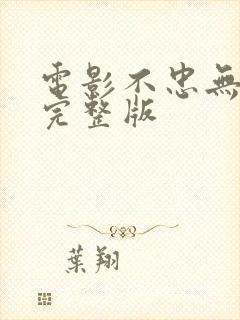 電影不忠無
完整版
葉翔